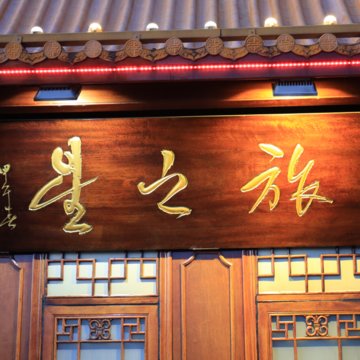 旅之星